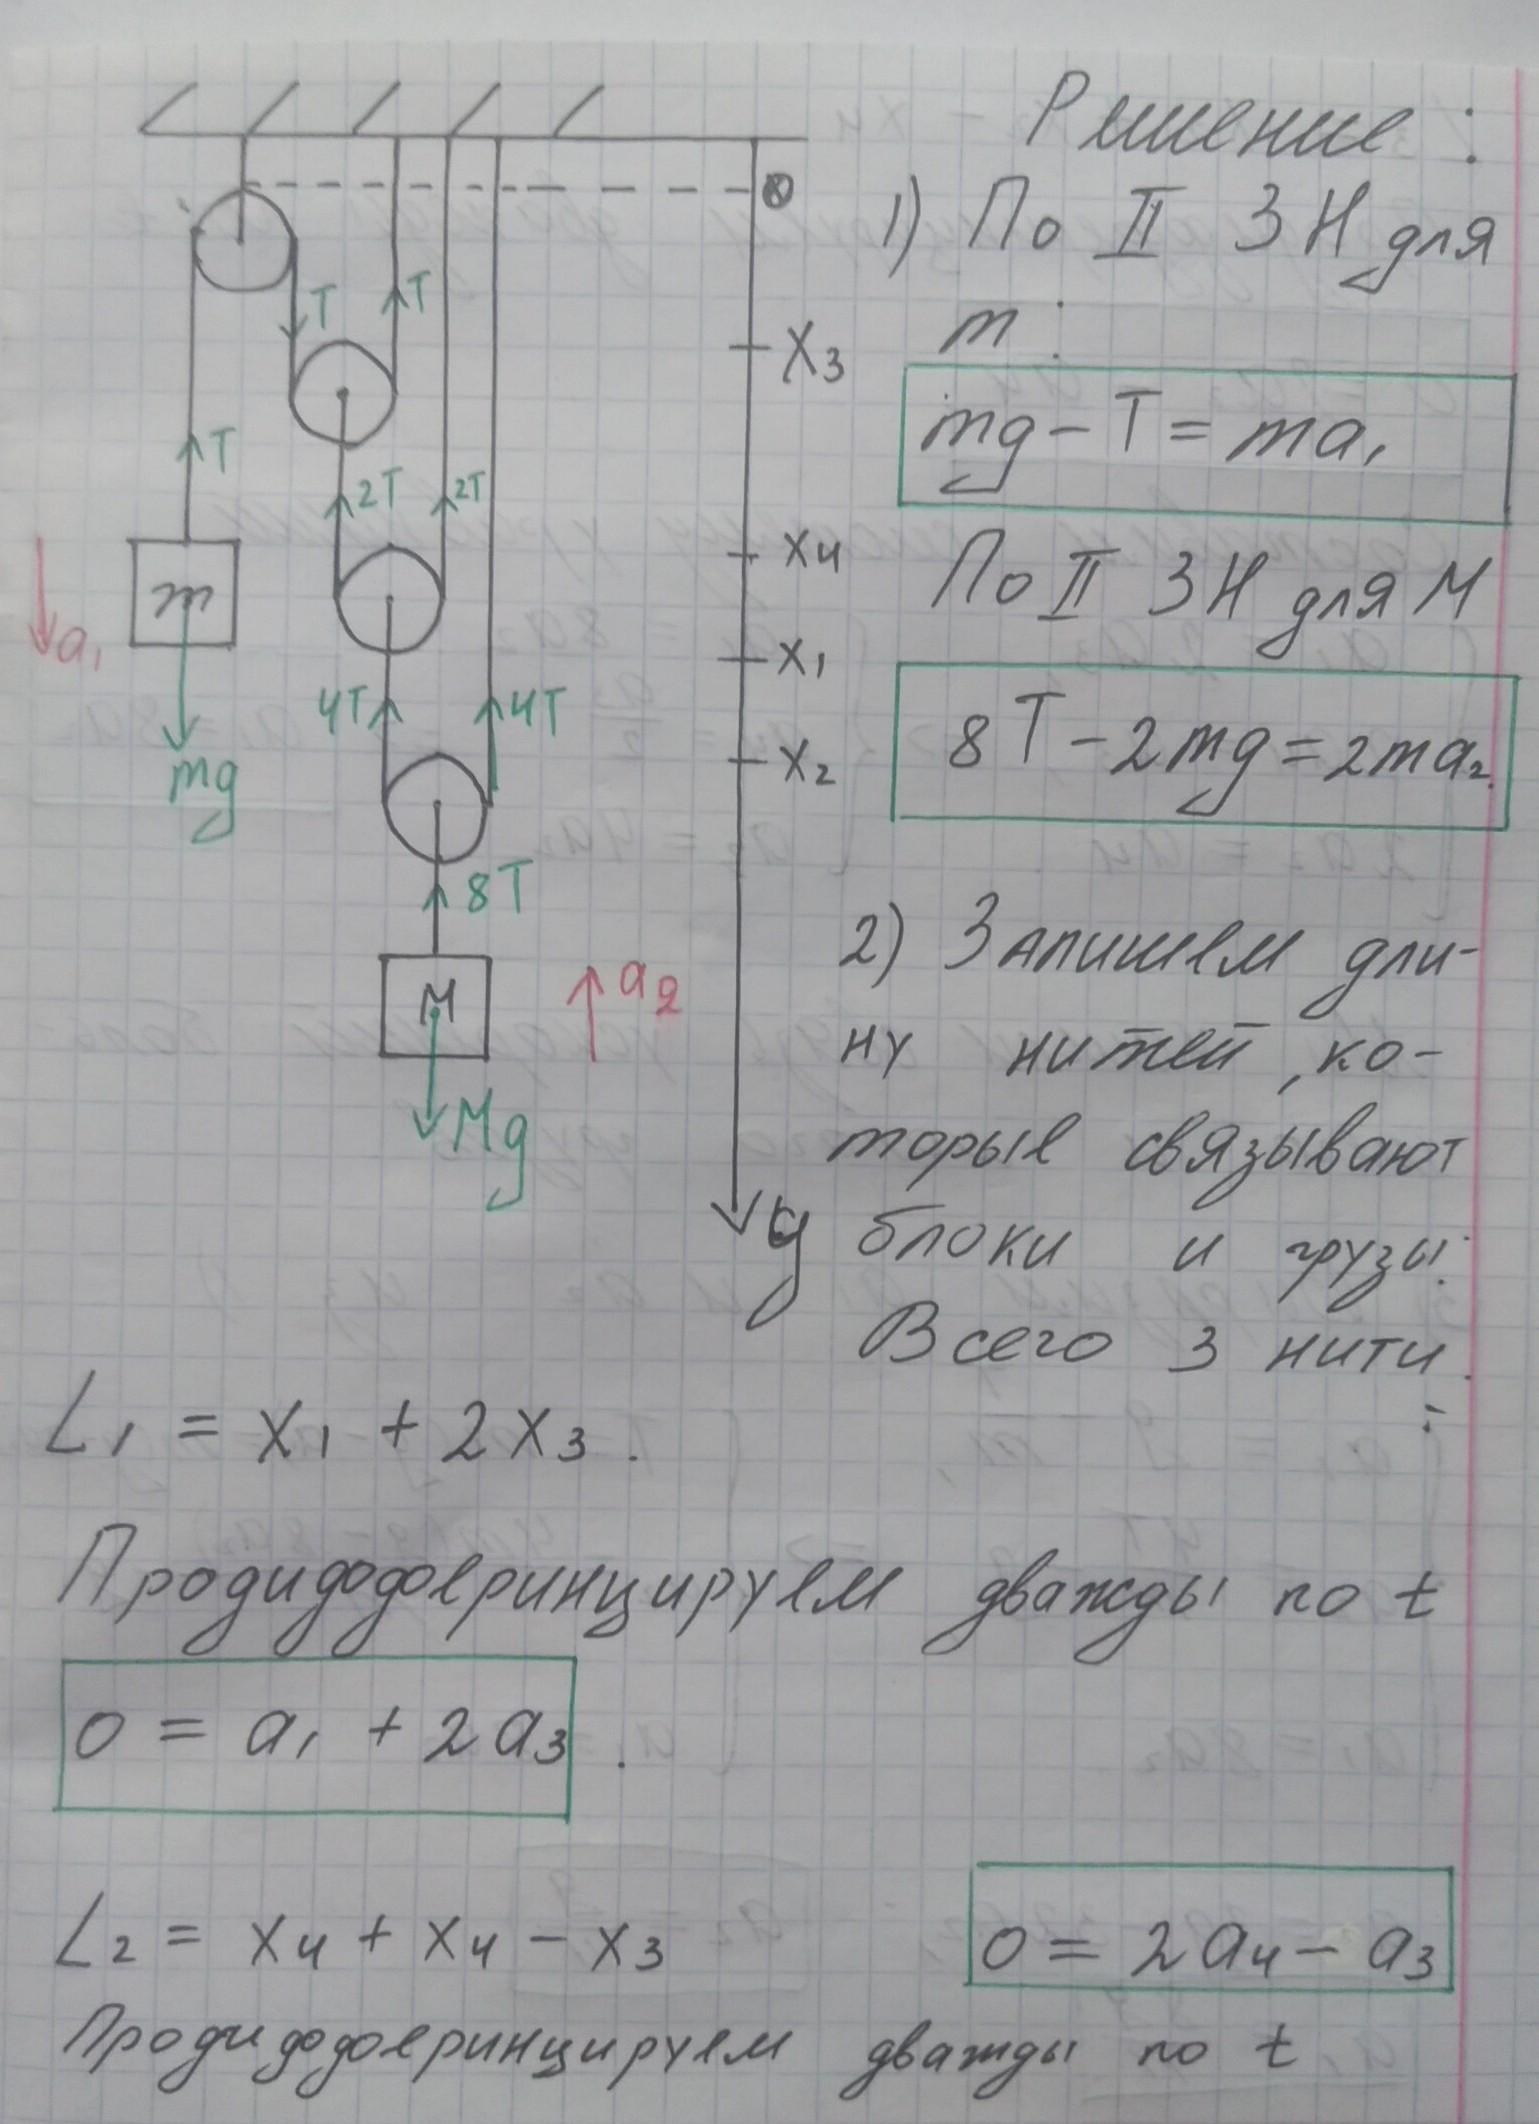 Решение:
1) По II ЗН для
m:
mg - T = ma₁
По II ЗН для M
8T - 2mg = 2ma₂
2) Запишем дли-
ну нитей, ко-
торые связывают
блоки и грузы.
Всего 3 нити.
T
T
T
2T
2T
m
a₁
mg
4T
4T
8T
M
a₂
Mg
X₃
X₄
X₁
X₂
y
L₁ = x₁ + 2x₃.
Продифференцируем дважды по t
0 = a₁ + 2a₃.
L₂ = x₄ + x₄ - x₃
0 = 2a₄ - a₃
Продифференцируем дважды по t